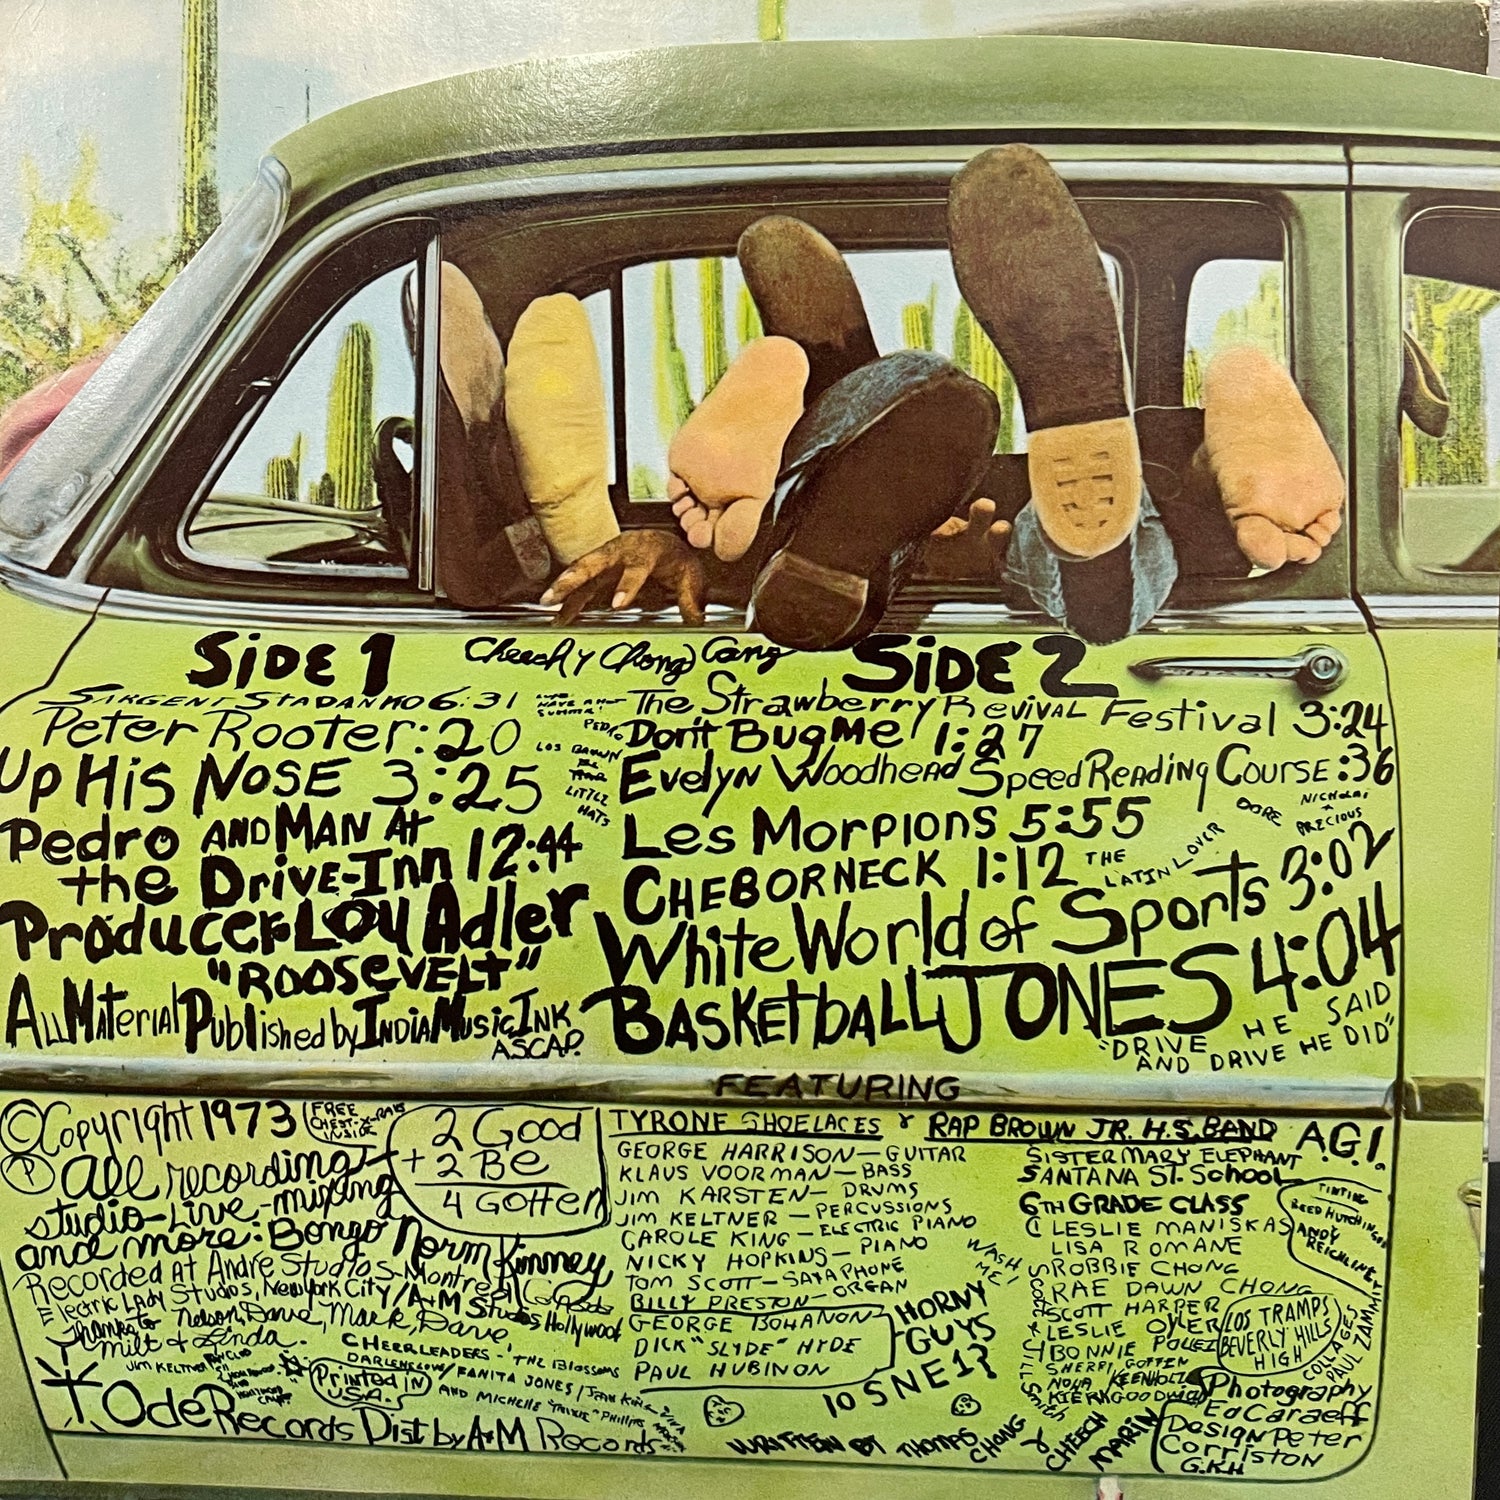 SIDE 1
Cheech y Chong Gang
SIDE 2
SARGENT STADANKO 6:31
Peter Rooter :20
Up His Nose 3:25
Pedro AND MAN At
the Drive-Inn 12:44
Producer Lou Adler
"ROOSEVELT"
All Material Published by India Music Ink
ASCAP
PEDRO
LOS BROWN
LITTLE
HATS
The Strawberry Revival Festival 3:24
Don't Bug Me 1:27
Evelyn Woodhead Speed Reading Course :36
Les Morpions 5:55
CHEBORNECK 1:12
White World of Sports 3:02
BASKETbALL JONES 4:04
THE
LATIN LOVER
DORE
NICHOLAI
+
PRECIOUS
"DRIVE HE SAID
AND DRIVE HE DID"
FEATURING
© Copyright 1973
FREE
CHEST-X-RAYS
INSIDE
2 Good
+ 2 Be
4 Gotten
℗ All recording
studio-live-mixing
and more: Bongo Norm Kinney
Recorded At Andre Studios-Montreal
Electric Lady Studios, New York City/A&M Studios Hollywood
Thanks to Nelson, Dave, Mark, Dave,
Milt & Linda.
JIM KELTNER
CHEERLEADERS - THE Blossoms
DARLENE LOVE/FANITA JONES/JEAN KING
AND MICHELLE Phillips
Printed IN
U.S.A.
Ode Records Dist by A&M Records
TYRONE SHOELACES & RAP BROWN JR. H.S. BAND
GEORGE HARRISON—GUITAR
KLAUS VOORMAN—BASS
JIM KARSTEN—DRUMS
JIM KELTNER—PERCUSSIONS
CAROLE KING—ELECTRIC PIANO
NICKY HOPKINS—PIANO
TOM SCOTT—SAXAPHONE
BILLY PRESTON—ORGAN
GEORGE BOHANON
DICK "SLYDE" HYDE
PAUL HUBINON
HORNY
GUYS
10 S NE 1?
WASH
ME!
A.G.I.
SISTER MARY ELEPHANT
SANTANA ST. School
6th GRADE CLASS
LESLIE MANISKAS
LISA ROMANE
ROBBIE CHONG
RAE DAWN CHONG
SCOTT HARPER
LESLIE OYLER
BONNIE POLEZ
SHERRI GOTTEN
NONA KEENHOLTZ
KIERK GOODWIN
TINTING
REED HUTCHINSON
ANDY
REICHLINE
LOS TRAMPS
BEVERLY HILLS
HIGH
COLLAGES
PAUL ZAMMIT
Photography
Ed Caraeff
Design Peter
Corriston
G.K.H
WRITTEN BY THOMAS
CHONG
&
CHEECH
MARIN